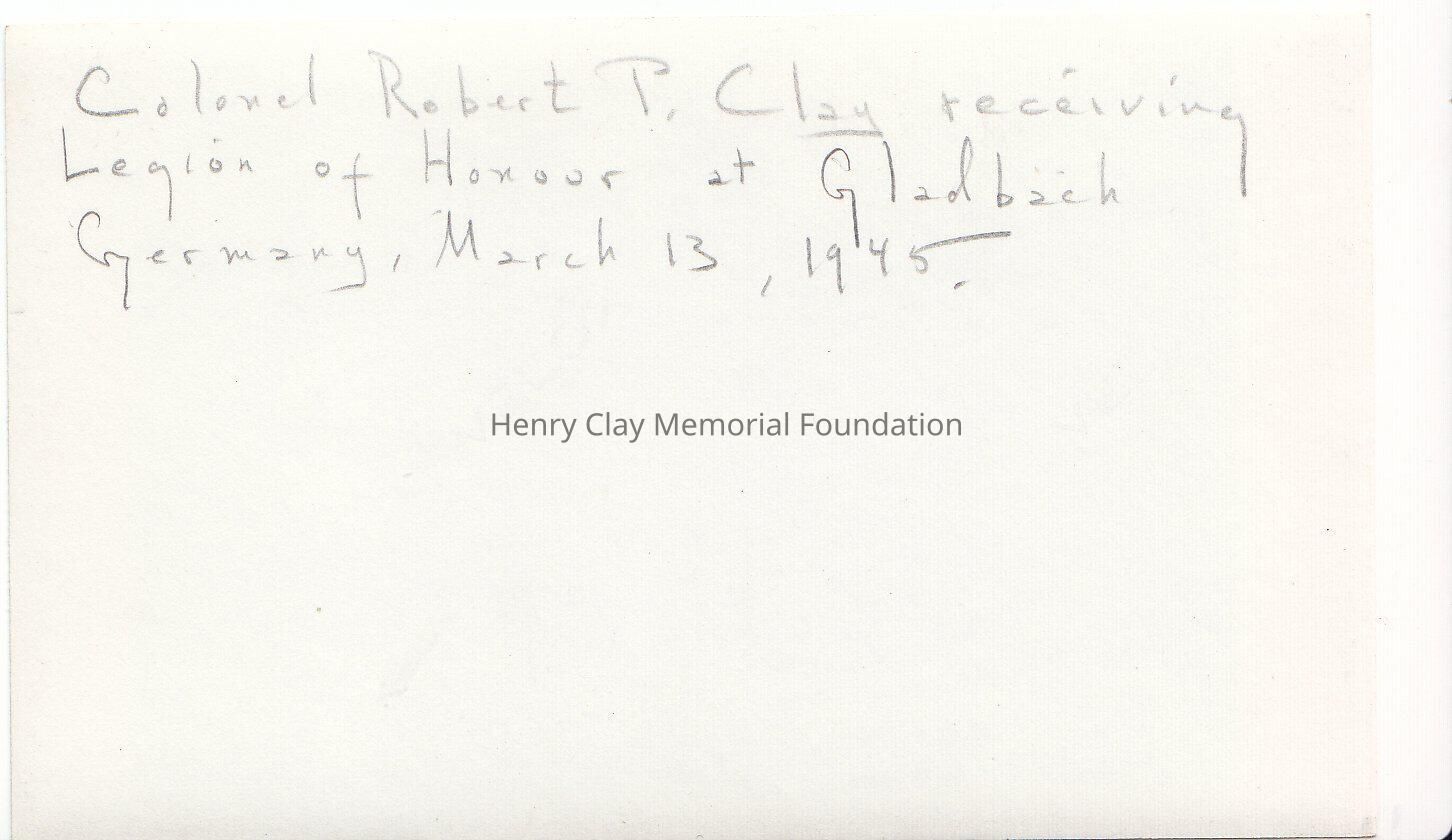 Colonel Robert P. Clay receiving
Legion of Honour at Gladbach
Germany, March 13, 1945.
Henry Clay Memorial Foundation